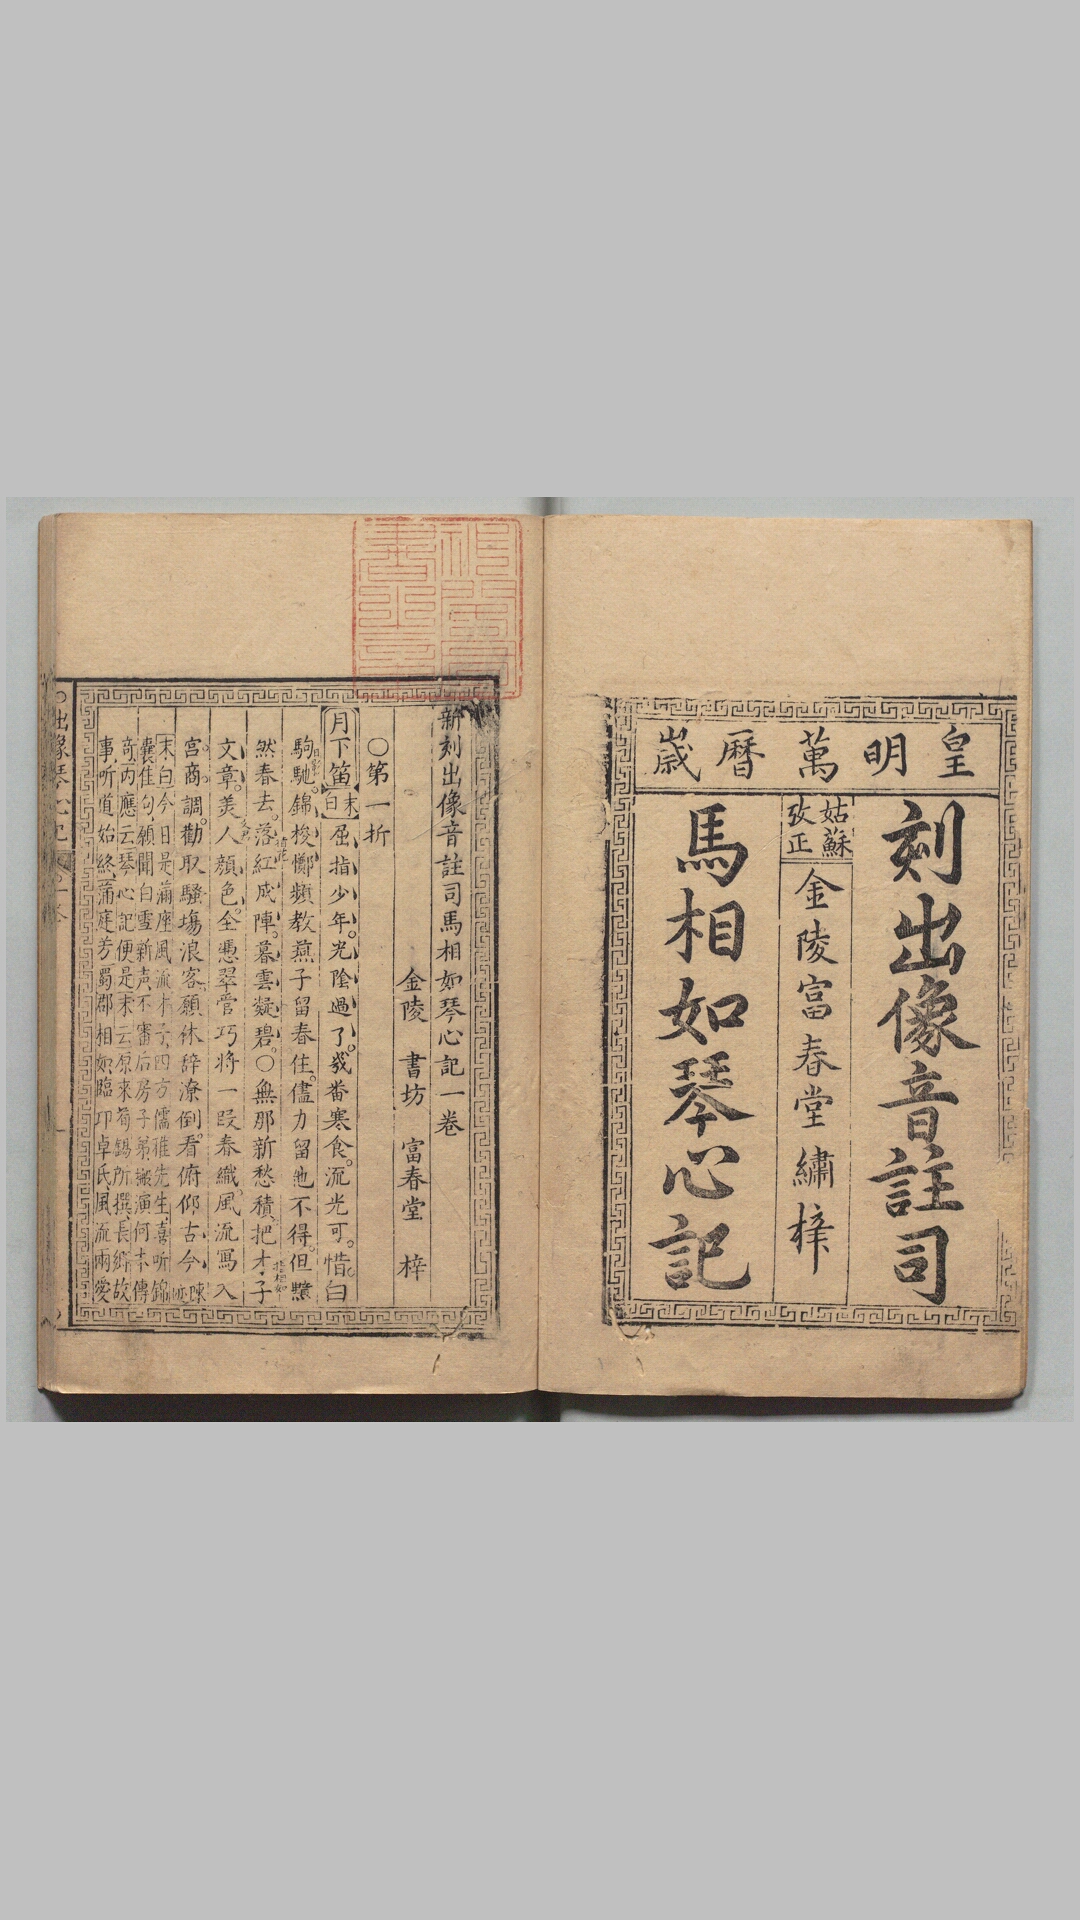 皇明萬曆歲
刻出像音註司
姑蘇
攷正
金陵富春堂繡梓
馬相如琴心記
新刻出像音註司馬相如琴心記一卷
金陵 書坊 富春堂 梓
○第一折
月下笛 末白 屈指少年。光陰過了。幾番寒食。流光可。惜白
駒馳。錦梭擲。頻教燕子留春住。儘力留他不得。但黯
然春去。落紅成陣。暮雲凝碧。○無那新愁積。把才子
文章。美人顔色。全憑翠管巧將一段春織。風流寫入
宮商調。勸取騷塲浪客。願休辞潦倒。看俯仰古今陳
末白今日是滿座風流才子四方儒雅先生喜听錦
囊佳句願聞白雪新声不審后房子弟搬演何本傳
奇内應云琴心記便是末云原來荀錫所撰長卿故
事听道始終滿庭芳蜀郡相如臨邛卓氏風流兩愛